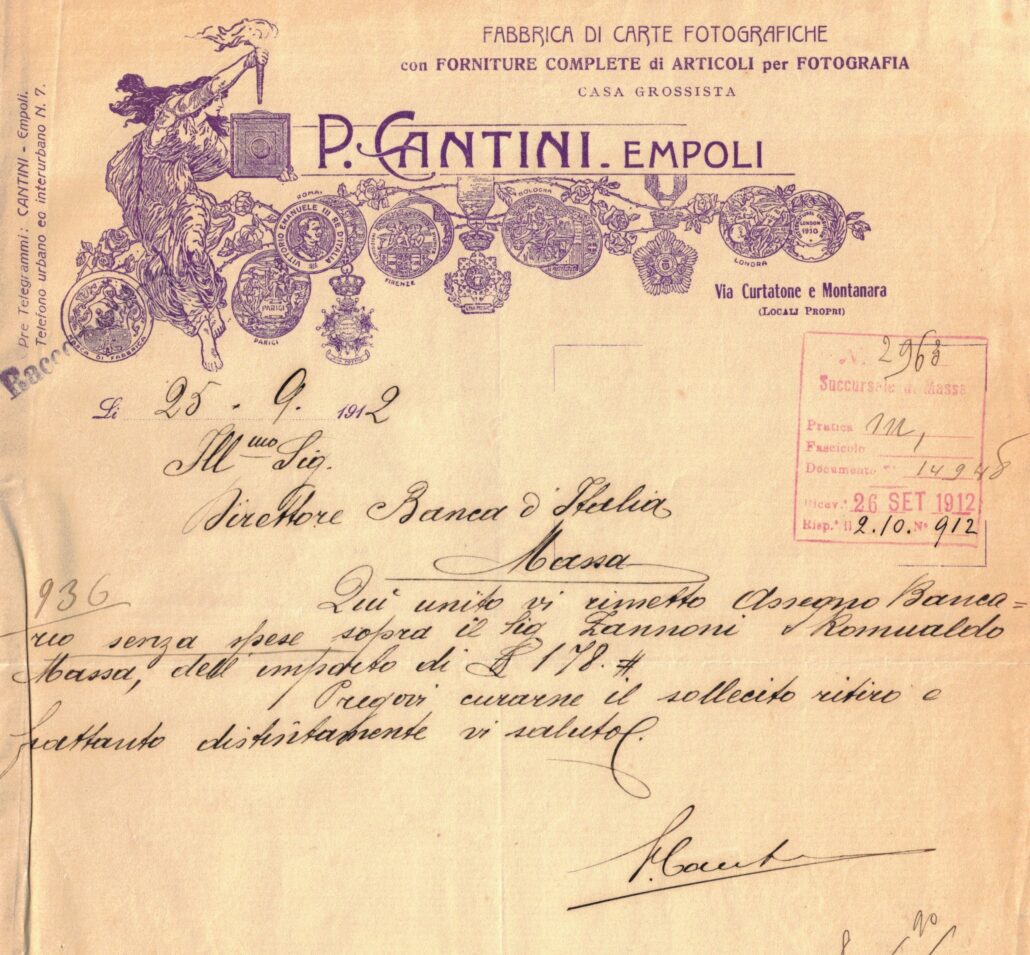 FABBRICA DI CARTE FOTOGRAFICHE
con FORNITURE COMPLETE di ARTICOLI per FOTOGRAFIA
CASA GROSSISTA
P. CANTINI - EMPOLI
Pre Telegrammi: CANTINI - Empoli.
Telefono urbano ed interurbano N. 7.
VITTORIO EMANUELE III RE D'ITALIA
ROMA
PARIGI
PARIGI
FIRENZE
BOLOGNA
LONDRA
LONDON
1910
DI FABBRICA
Via Curtatone e Montanara
(LOCALI PROPRI)
Racc
N. 2968
Succursale di Massa
Pratica
Fascicolo
Documento 14948
Ricev. 26 SET 1912
Risp.ª il 2.10. Nº 912
Li 25 - 9. 1912
Ill.mo Sig.
Direttore Banca d'Italia
Massa
936
Quì unito vi rimetto Assegno Banca=
rio senza spese sopra il Sig Zannoni Romualdo
Massa, dell'importo di £ 178. #
Pregovi curarne il sollecito ritiro e
frattanto distintamente vi saluto.
90